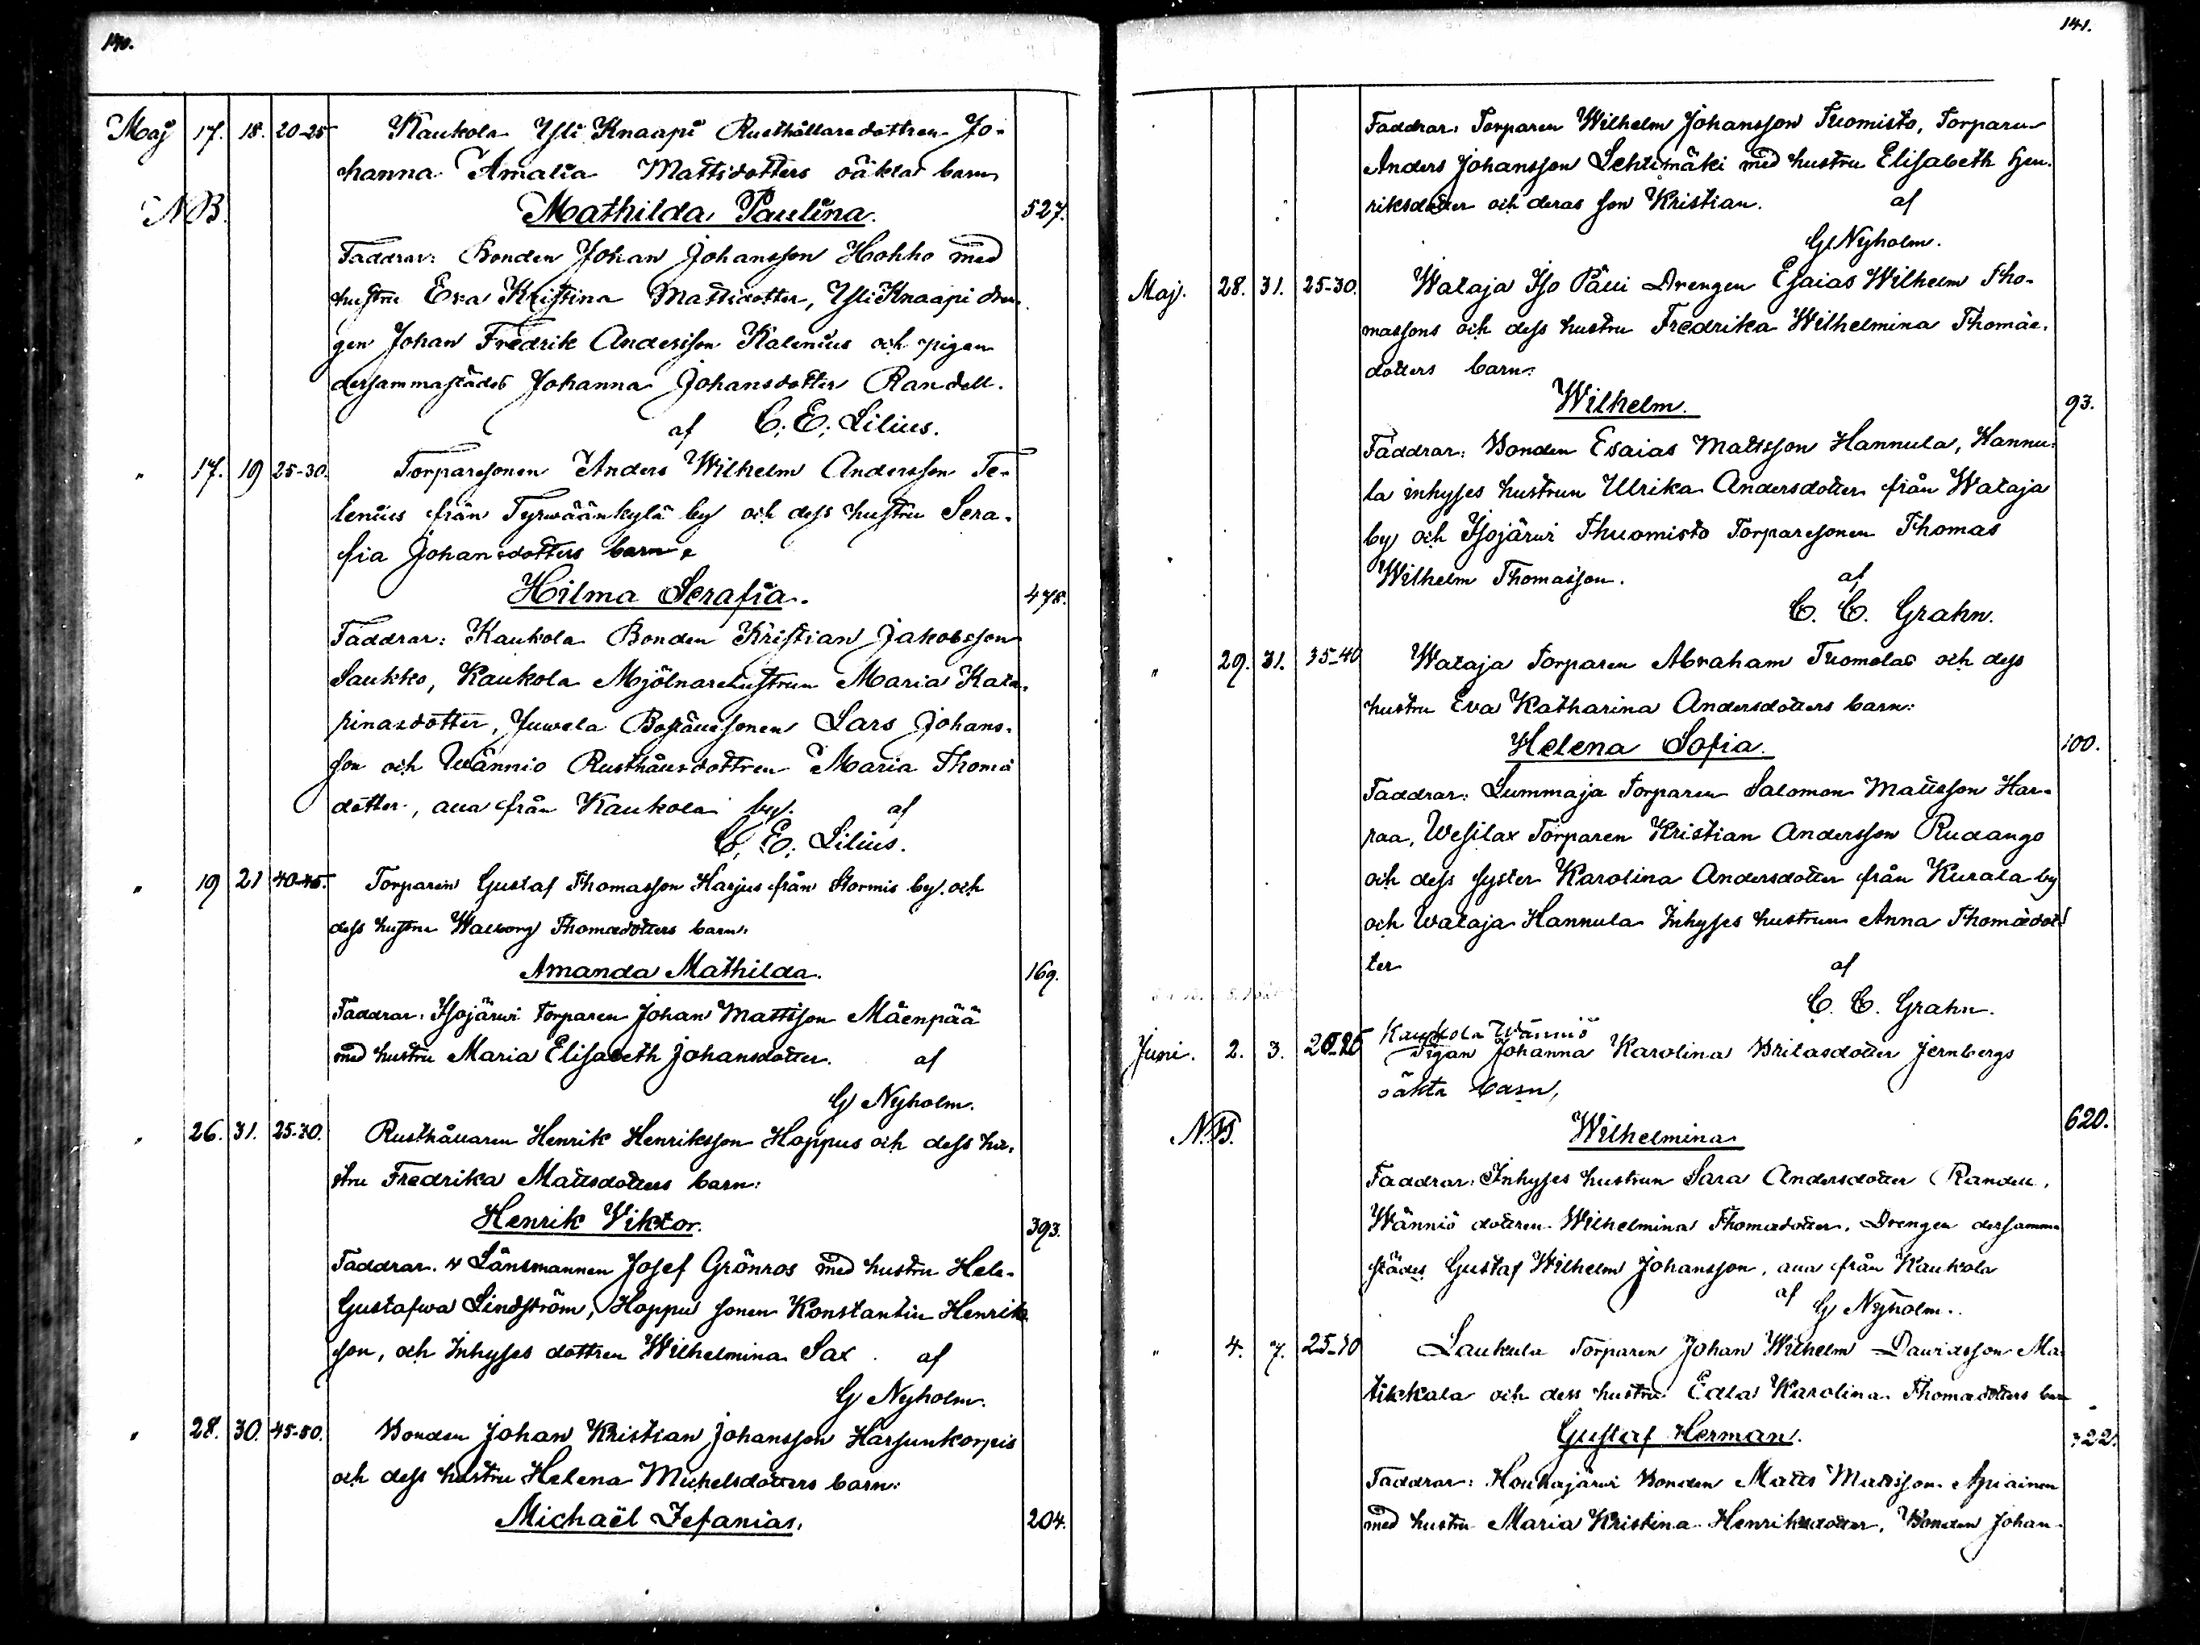 140.
Maj 17. 18. 20-25 Kaukola Yli Knaapi Rusthållaredottren Jo-
hanna Amalia Mattsdotters oäkta barn
NB. Mathilda Paulina. 527.
Faddrar: Bonden Johan Johansson Hohho med
hustru Eva Kristina Mattsdotter, Yli Knaapi dren-
gen Johan Fredrik Andersson Kalenius och pigan
dersammastädes Johanna Johansdotter Randell.
af C. E. Lilius.
" 17. 19 25-30. Torparesonen Anders Wilhelm Andersson Te-
lenius från Tyrwäänkylä by och dess hustru Sera-
fia Johansdotters barn
Hilma Serafia. 478.
Faddrar: Kaukola Bonden Kristian Jakobsson
Saukko, Kaukola Mjölnarehustrun Maria Kata-
rinasdotter, Juwela Bofällesonen Lars Johans-
son och Wännio Rusthållsdottren Maria Thomä
dotter, alla från Kaukola by. af
C. E. Lilius.
" 19 21 40-45. Torparen Gustaf Thomasson Harjus från Stormis by och
dess hustru Walborg Thomædotters barn:
Amanda Mathilda. 169.
Faddrar: Isojärwi Torparen Johan Mattsson Mäenpää
med hustru Maria Elisabeth Johansdotter. af
G Nyholm.
" 26. 31. 25-30. Rusthållaren Henrik Henriksson Hoppus och dess hu-
stru Fredrika Mattsdotters barn:
Henrik Viktor. 393.
Faddrar. Länsmannen Josef Grönros med hustru Hele-
Gustafwa Lindström, Hoppu sonen Konstantin Henrik
son, och Inhyses dottren Wilhelmina Sax. af
G Nyholm.
" 28. 30. 45-50. Bonden Johan Kristian Johansson Harsunkorpis
och dess hustru Helena Michelsdotters barn:
Michaël Zefanias. 204.
141.
Faddrar: Torparen Wilhelm Johansson Tuomisto, Torparen
Anders Johansson Lehtimäki med hustru Elisabeth Hen-
riksdotter och deras son Kristian. af
G Nyholm.
Maj. 28. 31. 25-30. Wataja Iso Pälli Drengen Esaias Wilhelm Tho-
massons och dess hustru Fredrika Wilhelmina Thomæ-
dotters barn:
Wilhelm. 93.
Faddrar: Bonden Esaias Mattsson Hannula, Hannu-
la inhyses hustrun Ulrika Andersdotter från Wataja
by och Isojärwi Thuomisto Torparesonen Thomas
Wilhelm Thomasson. af
C. C. Grahn.
" 29. 31. 35-40 Wataja Torparen Abraham Tuomolas och dess
hustru Eva Katharina Andersdotters barn:
Helena Sofia. 100.
Faddrar: Lummaja Torparen Salomon Mattsson Har-
raa, Wesilax Torparen Kristian Andersson Rudango
och dess syster Karolina Andersdotter från Kurala by
och Wataja Hannula Inhyses hustrun Anna Thomædot-
ter af
C. C. Grahn.
Kaukola Wänniö
Juni. 2. 3. 20-25 Pigan Johanna Karolina Britasdotter Jernbergs
oäkta barn,
N.B. Wilhelmina 620.
Faddrar: Inhyses hustrun Sara Andersdotter Randell,
Wänniö dottren Wilhelmina Thomædotter, Drengen dersamma
städes Gustaf Wilhelm Johansson, alla från Kaukola
af G Nyholm.
" 4. 7. 25-30 Laukula Torparen Johan Wilhelm Davidsson Ma-
tikkala och dess hustru Edla Karolina Thomædotters barn
Gustaf Herman. 322.
Faddrar: Houhajärwi Bonden Matts Mattsson Apiainen
med hustru Maria Kristina Henriksdotter, Bonden Johan